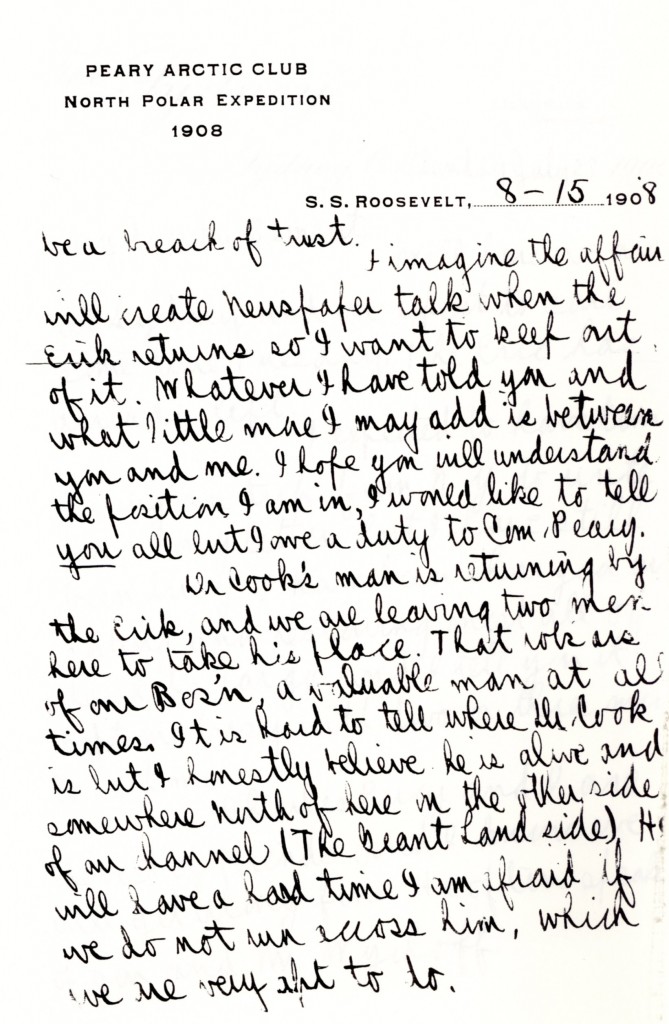 PEARY ARCTIC CLUB
NORTH POLAR EXPEDITION
1908
S. S. ROOSEVELT, 8-15 1908
be a breach of trust.
I imagine the affair
will create newspaper talk when the
Erik returns so I want to keep out
of it. Whatever I have told you and
what little more I may add is between
you and me. I hope you will understand
the position I am in, I would like to tell
you all but I owe a duty to Com. Peary.
Dr Cook's man is returning by
the Erik, and we are leaving two men
here to take his place. That robs us
of our Bos'n, a valuable man at al
times. It is hard to tell where Dr. Cook
is but I honestly believe he is alive and
somewhere north of here on the other side
of our channel (The Grant Land side). He
will have a hard time I am afraid if
we do not run across him, which
we are very apt to do.